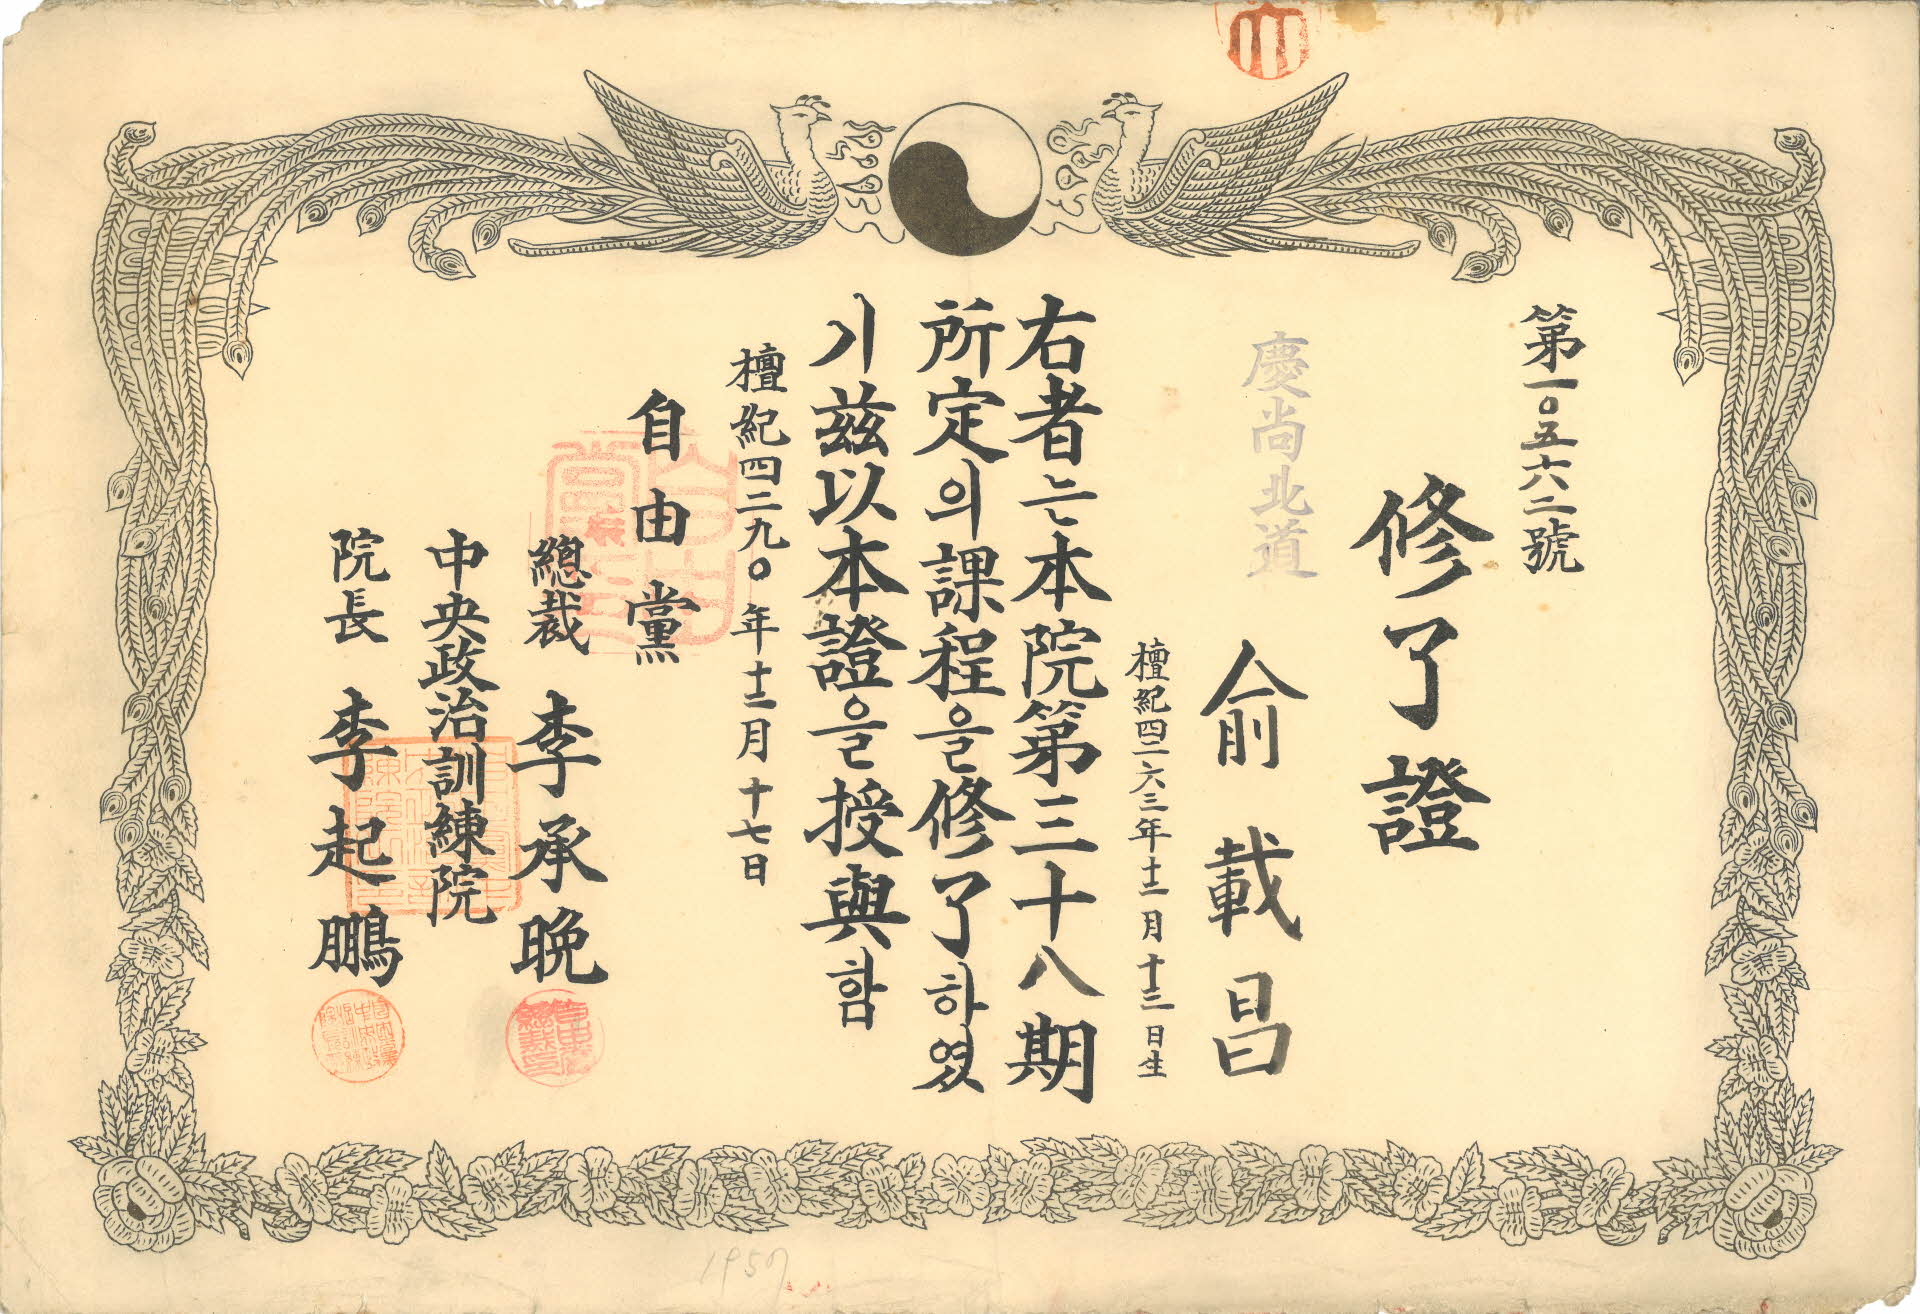 第一〇五六二號
修了證
慶尚北道
俞載昌
檀紀四二六三年十二月十三日生
右者는本院第三十八期
所定의課程을修了하였
기玆以本證을授與함
檀紀四二九〇年十二月十七日
自由黨
總裁 李承晩
中央政治訓練院
院長 李起鵬
1957